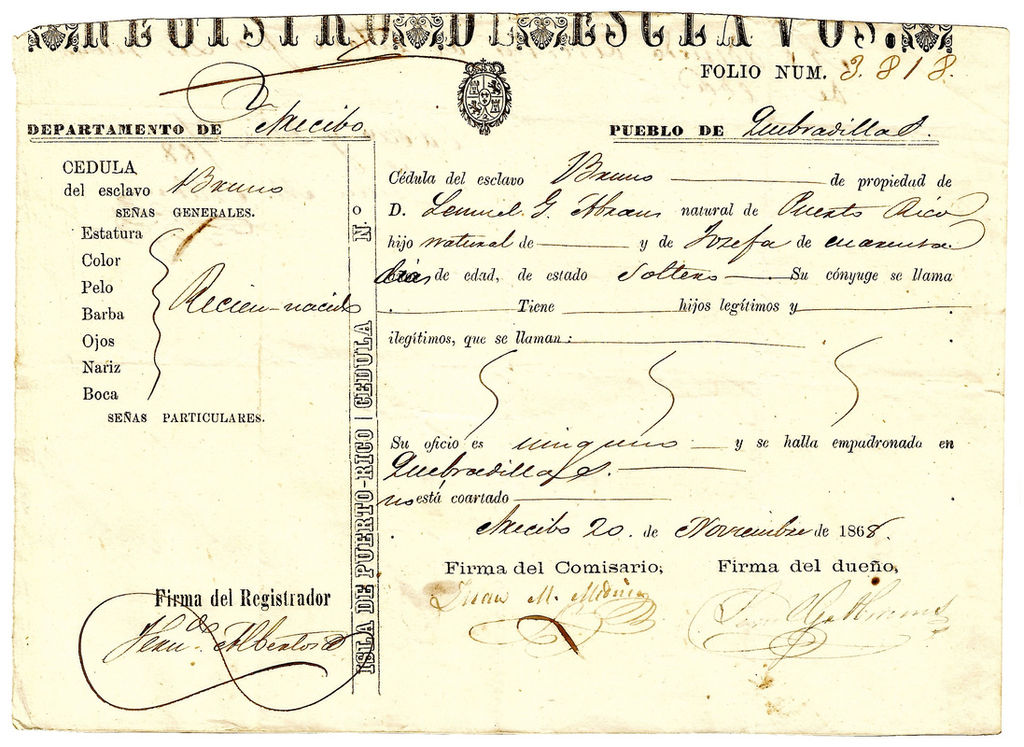 REGISTRO DE ESCLAVOS.
FOLIO NUM. 3.818.
DEPARTAMENTO DE Arecibo
PUEBLO DE Quebradillas.
CEDULA
del esclavo Bruno
SEÑAS GENERALES.
Estatura
Color
Pelo
Barba
Ojos
Nariz
Boca
Recien-nacido
SEÑAS PARTICULARES.
Firma del Registrador
ISLA DE PUERTO-RICO | CEDULA N.o
Cédula del esclavo Bruno de propiedad de
D. Lemuel G. natural de Puerto Rico
hijo natural de y de Jozefa de cuarenta
dias de edad, de estado soltero. Su cónyuge se llama
Tiene hijos legítimos y
ilegítimos, que se llaman:
Su oficio es ninguno y se halla empadronado en
Quebradillas.
no está coartado
Arecibo 20. de Noviembre de 1868.
Firma del Comisario,
Juan M.
Firma del dueño,